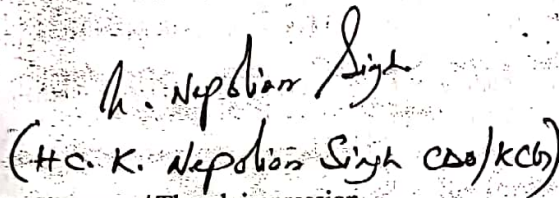 K. Nepolian Singh
(HC. K. Nepolion Singh CDO/KCG)